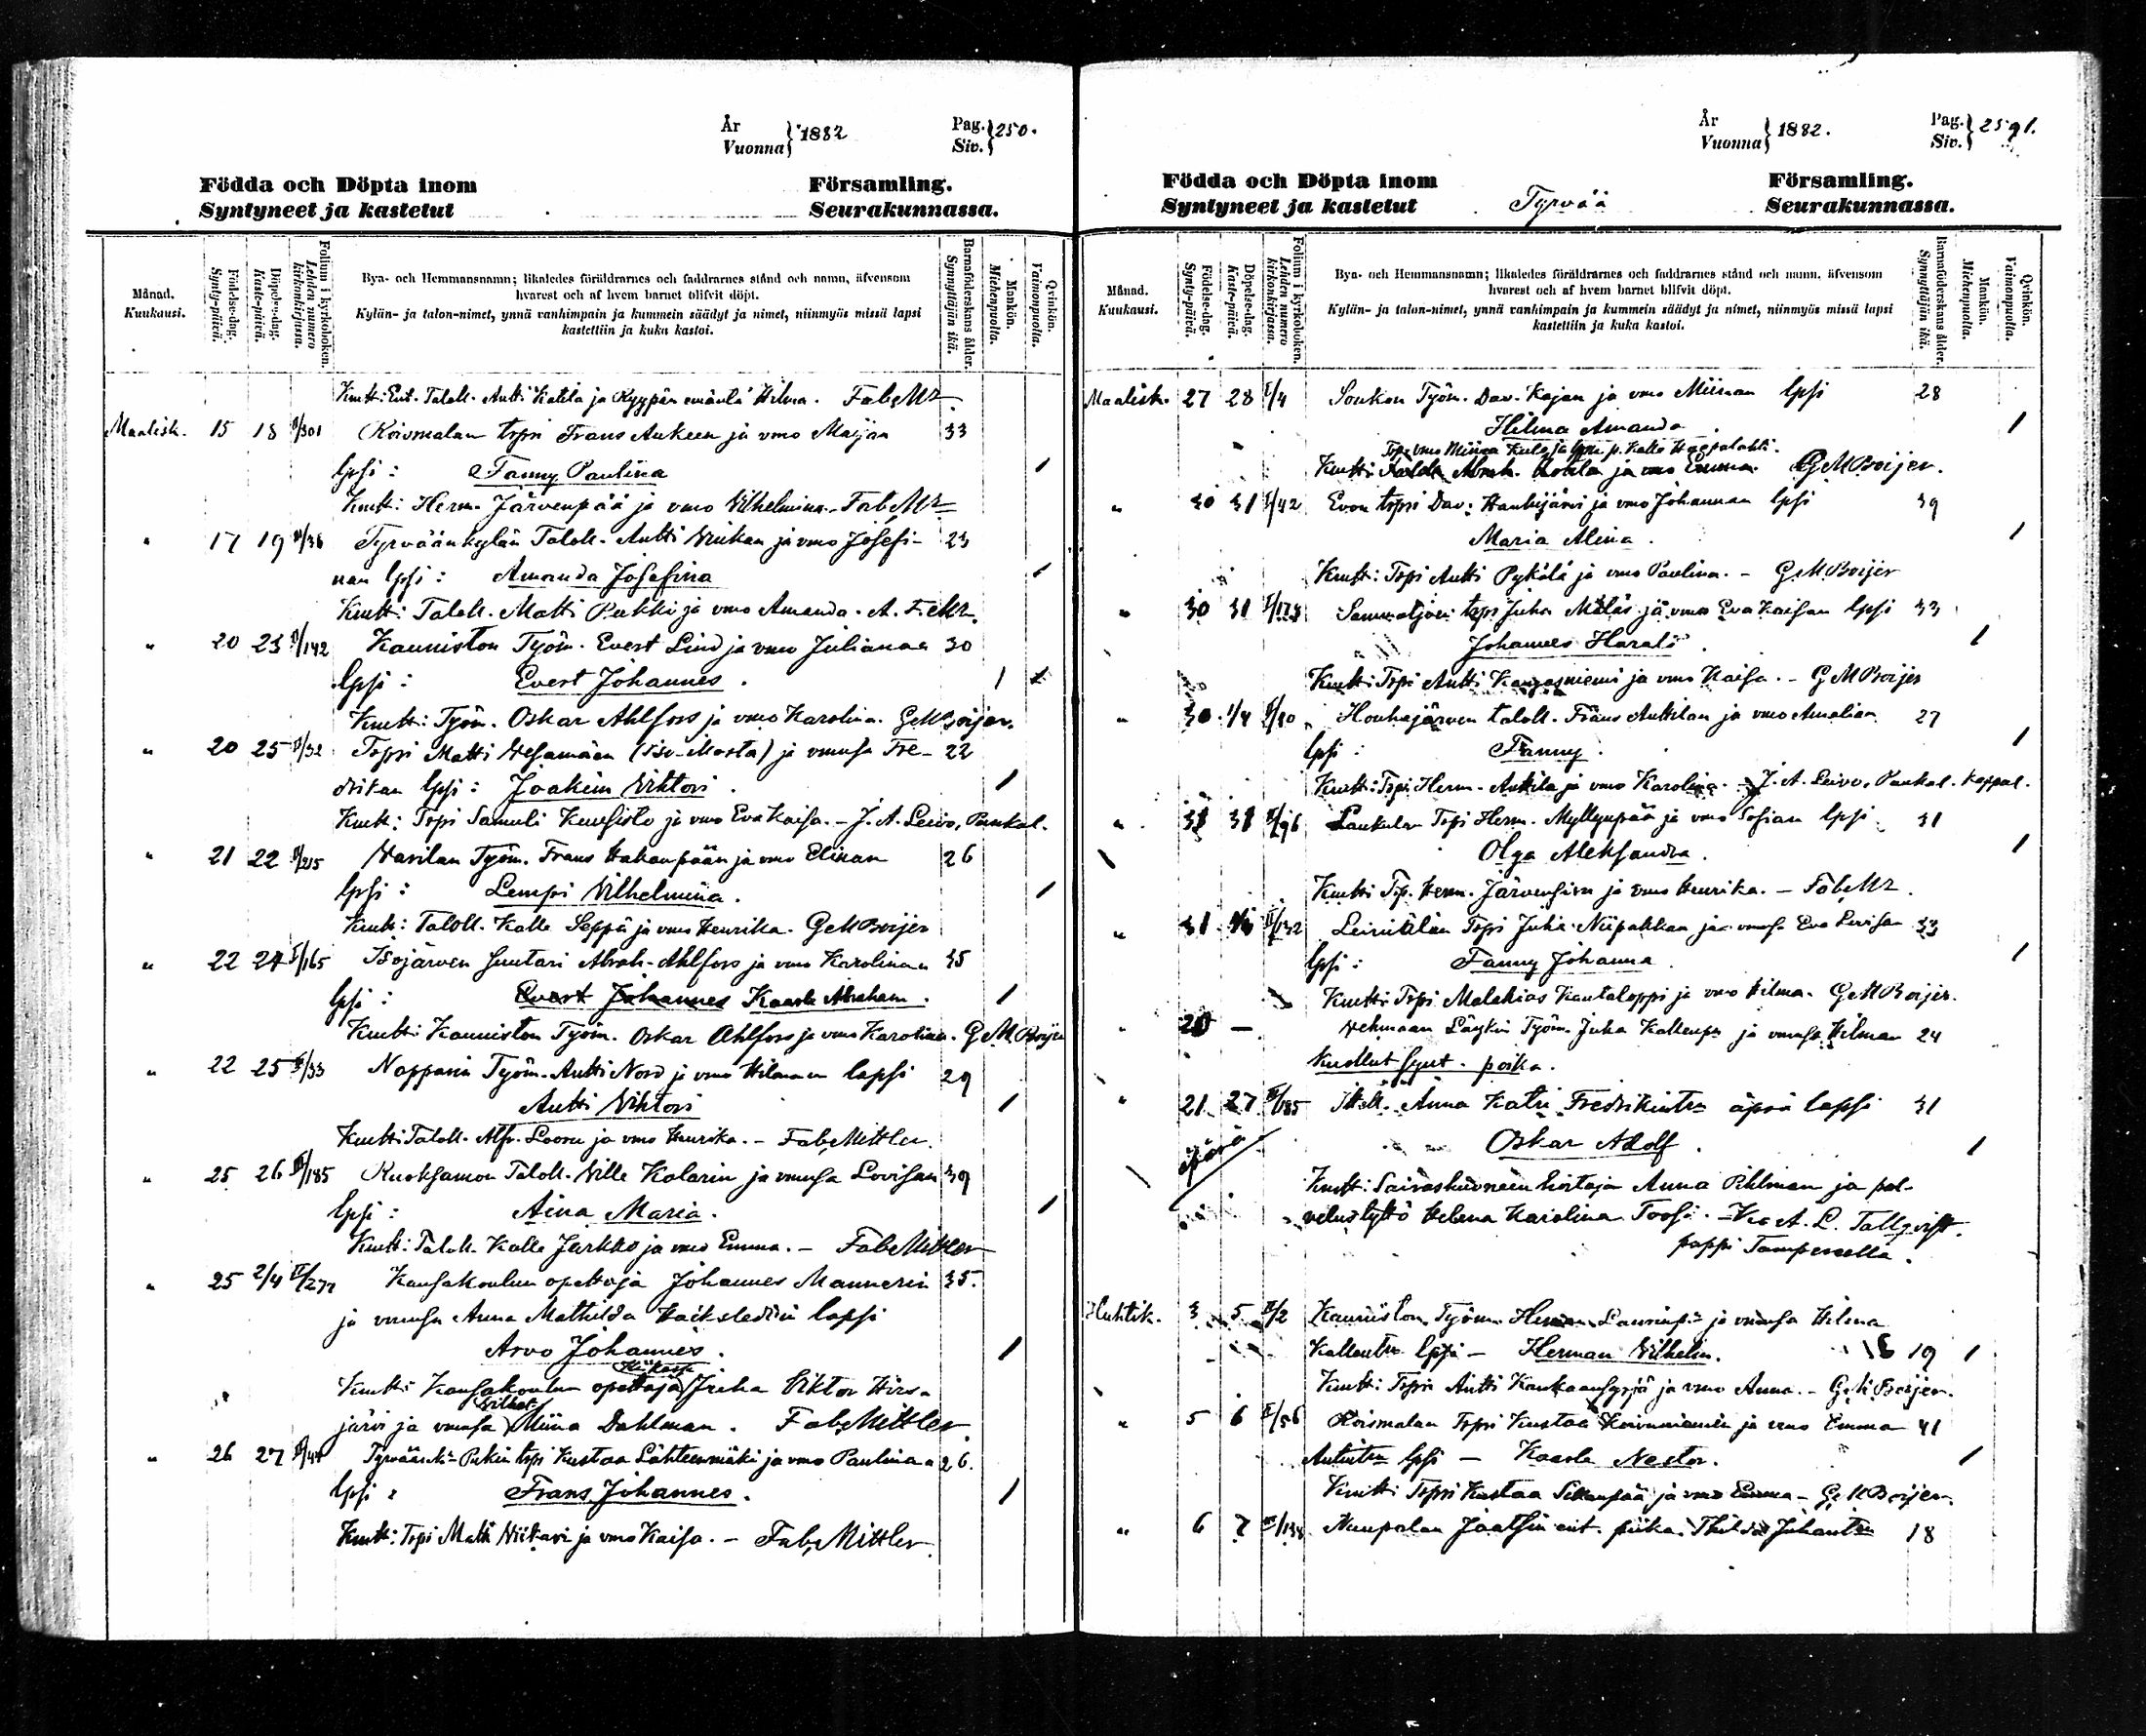 År
Vuonna } 1882
Pag.
Siv. } 250.
Födda och Döpta inom Församling.
Syntyneet ja kastetut Seurakunnassa.
Månad.
Kuukausi.
Födelse-dag.
Synty-päivä.
Döpelse-dag.
Kaste-päivä.
Folium i kyrkoboken.
Lehden numero kirkonkirjassa.
Bya- och Hemmansnamn; likaledes föräldrarnes och faddrarnes stånd och namn, äfvensom
hvarest och af hvem barnet blifvit döpt.
Kylän- ja talon-nimet, ynnä vanhimpain ja kummein säädyt ja nimet, niinmyös missä lapsi
kastettiin ja kuka kastoi.
Barnaföderskans ålder.
Synnyttäjän ikä.
Mankön.
Miehenpuolta.
Qvinkön.
Vaimonpuolta.
Kmtt: Ent. Taloll. Antti Katila ja Kyypän emäntä Hilma. Fab. Mr
Maalisk. 15 18 Koivmalan trpri Frans Aukeen ja vmo Maijan 33
lpsi: Fanny Paulina 1
Kmtt: Herm. Järvenpää ja vmo Vilhelmina. Fab. Mr
" 17 19 Tyrväänkylän Taloll. Antti Vrikan ja vmo Josefi- 23
nan lpsi: Amanda Josefina 1
Kmtt: Taloll. Matti Pukki ja vmo Amanda. A. F. Mr.
" 20 23 /142 Kauniston Työm. Evert Lind ja vmo Julianan 30
lpsi: Evert Johannes. 1
Kmtt: Työm. Oskar Ahlfors ja vmo Karolina. G M Boijer.
" 20 25 /32 Trpri Matti Vesamäen ja vmnsa Fre- 22
drikan lpsi: Joakim Vihtori. 1
Kmtt: Trpi Samuli Kuusisto ja vmo Eva Kaisa. - J. A. Leivo, Punkal.
" 21 22 /215 Varilan Työm. Frans Hakanpään ja vmo Elinan 26
lpsi: Lempi Vilhelmina. 1
Kmtt: Taloll. Kalle Seppä ja vmo Henrika. G M Boijer
" 22 24 /165 Isojärven Suutari Abrah. Ahlfors ja vmo Karolinan 35
lpsi: Evert Johannes Kaarle Abraham. 1
Kmtt: Kauniston Työm. Oskar Ahlfors ja vmo Karolina. G M Boijer
" 22 25 /33 Nopparin Työm. Antti Nord ja vmo Hilman lapsi 29
Antti Vihtori 1
Kmtt: Taloll. Alfr. Looru ja vmo Henrika. - Fab. Mittler.
" 25 26 /185 Ruoksamon Taloll. Ville Kalarin ja vmnsa Lovisan 39
lpsi: Aina Maria. 1
Kmtt: Taloll. Kalle Jarkko ja vmo Emma. - Fab Mittler
" 25 2/4 Kansakoulun opettaja Johannes Mannerin 35.
ja vmnsa Anna Mathilda lapsi
Arvo Johannes. 1
Kmtt: Kansakoulun opettaja Juha Viktor Hirs-
järvi ja vmnsa Miina Dahlman. Fab. Mittler
" 26 27 Pukin trpi Kustaa Lähteenmäki ja vmo Paulinan 26.
lpsi: Frans Johannes. 1
Kmtt: Trpi Matti Niitari ja vmo Kaisa. - Fab. Mittler.
År
Vuonna } 1882.
Pag.
Siv. } 2591.
Födda och Döpta inom Församling.
Syntyneet ja kastetut Tyrvää Seurakunnassa.
Månad.
Kuukausi.
Födelse-dag.
Synty-päivä.
Döpelse-dag.
Kaste-päivä.
Folium i kyrkoboken.
Lehden numero kirkonkirjassa.
Bya- och Hemmansnamn; likaledes föräldrarnes och faddrarnes stånd och namn, äfvensom
hvarest och af hvem barnet blifvit döpt.
Kylän- ja talon-nimet, ynnä vanhimpain ja kummein säädyt ja nimet, niinmyös missä lapsi
kastettiin ja kuka kastoi.
Barnaföderskans ålder.
Synnyttäjän ikä.
Mankön.
Miehenpuolta.
Qvinkön.
Vaimonpuolta.
Maalisk. 27 28 I/4 Soukon Työm. Dav. Kajan ja vmo Miinan lpsi 28
Hilma Amanda 1
Kalle Haapalahti.
Kmtt: ja vmo Emma. G M Boijer.
" 30 31 I/42 Evon trpri Dav: Haukijärvi ja vmo Johannan lpsi 39
Maria Alina. 1
Kmtt: Trpi Antti Pykälä ja vmo Paulina. - G M Boijer
" 30 31 I/178 Sammaljoen trpi Juha Mäläs ja vmo Eva Kaisan lpsi 33
Johannes Harald. 1
Kmtt: Trpi Antti Kangasniemi ja vmo Kaisa. - G M Boijer
" 30 1/4 /80 Houhajärven taloll. Frans Anttilan ja vmo Amalian 27
lpsi: Fanny. 1
Kmtt: Trpi Herm. Anttila ja vmo Karolina. - J. A. Leivo, Punkal. kappal.
" 31 31 /96 Laukulan Trpi Herm. Myllynpään ja vmo Sofian lpsi 31
Olga Aleksandra. 1
Kmtt: Trp. Herm. Järvensivu ja vmo Henrika. - Fab. Mr.
" 31 /132 Leiniälän Trpi Juha Niipakkan ja vmnsa Eva Lovisan 33
lpsi: Fanny Johanna 1
Kmtt: Trpi Malakias Kantaloppi ja vmo Hilma. G M Boijer.
" 20 - Vehmaan Läykin Työm. Juha Kallenp. ja vmnsa Hilman 24
Kuollut synt. poika.
" 21 27 /185 Anna Katri Fredrikintr. äprä lapsi 31
äpärä
Oskar Adolf. 1
Kmtt: Sairashuoneen hoitaja Anna Pihlman ja pal-
velustyttö Helena Karolina Toosi. - K. A. L. Tallqvist.
pappi Tampereella.
Huhtik. 3 5 /2 Kauniston Työm. Herman Laurinp. ja vmnsa Hilma
Kallentr. lpsi - Herman Vilhelm. 19 1
Kmtt: Trpri Antti Kankaansyrjä ja vmo Anna. - G. M Boijer.
" 5 6 /56 Roismalan Trpri Kustaa Koivuniemen ja vmo Emma 41
Antintr. lpsi - Kaarle Nestor. 1
Kmtt: Trpri Kustaa ja vmo Emma - G. M Boijer.
" 6 7 /138 Nuupalan Jaatsin ent. piika Thilda Juhantr. 18